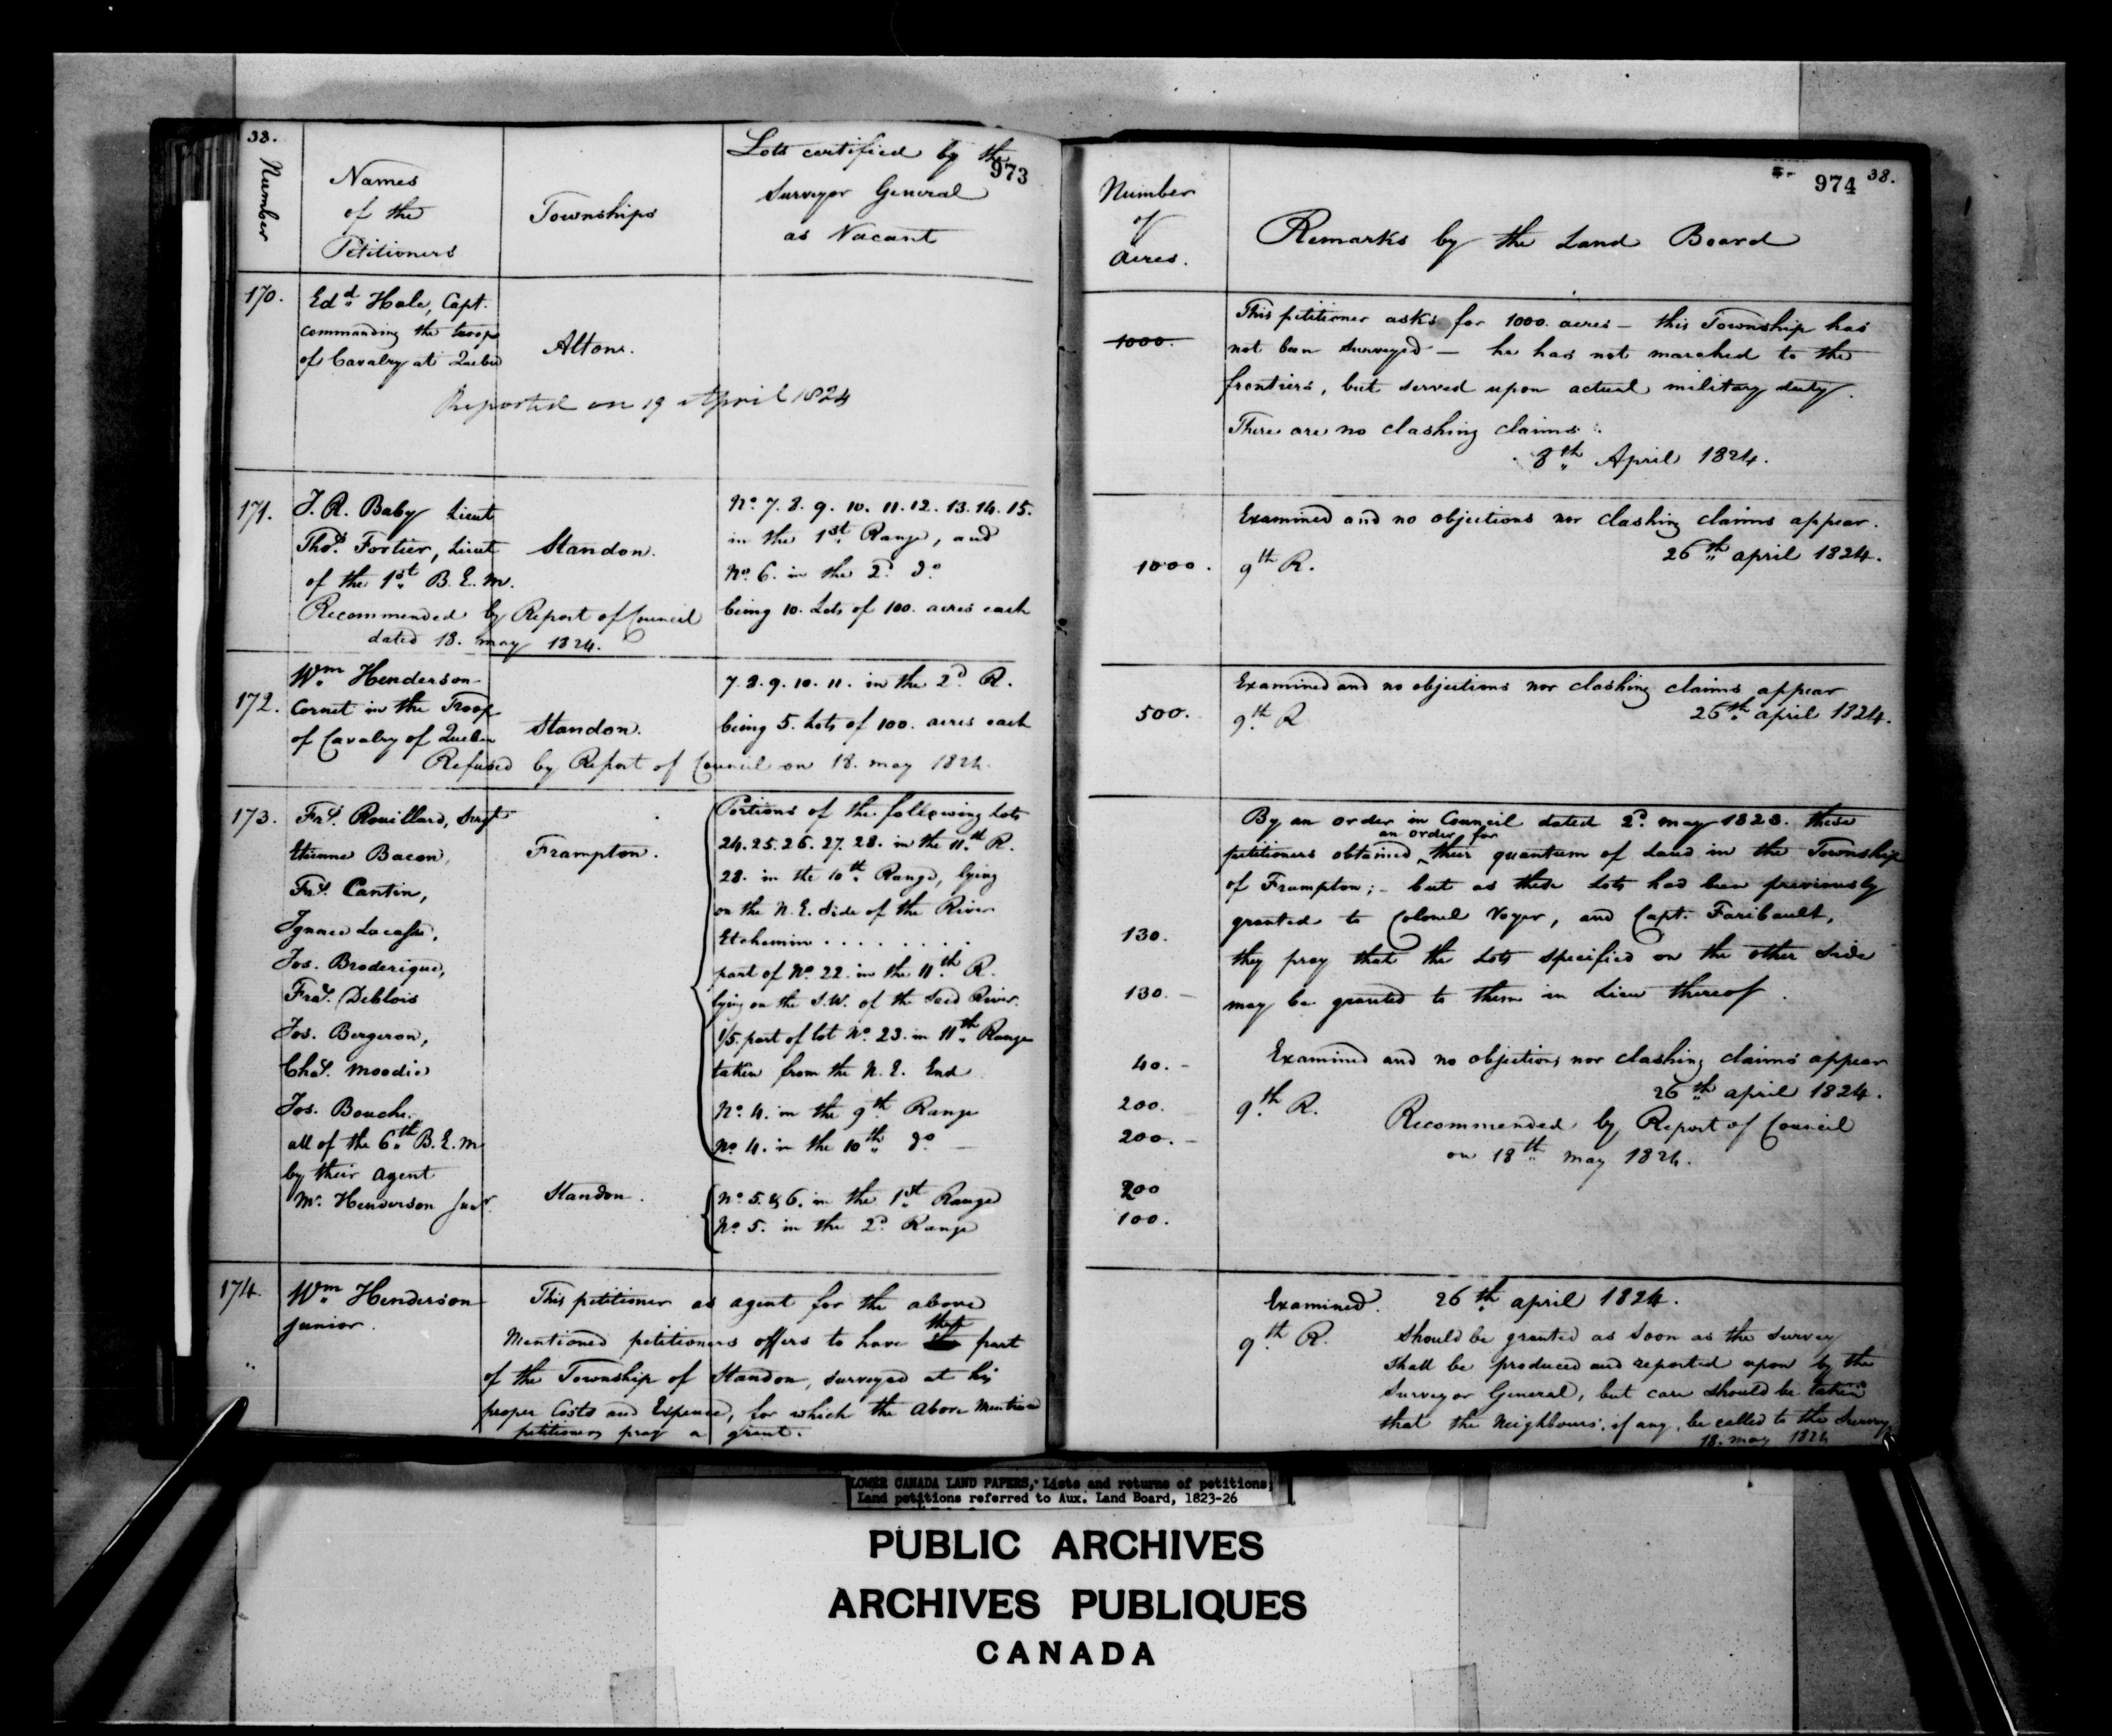 38.
973
Number
Names
of the
Petitioners
Townships
Lots certified by the
Surveyor General
as Vacant
170.
Edd. Hale, Capt.
commanding the troop
of Cavalry at Quebec
Alton.
Reported on 19 April 1824
171.
J. R. Baby Lieut
Thos. Fortier, Lieut
of the 1st B. E. M.
Recommended by Report of Council
dated 18. may 1824.
Standon.
No. 7. 8. 9. 10. 11. 12. 13. 14. 15.
in the 1st. Range, and
No. 6. in the 2d. do.
being 10. Lots of 100. acres each
172.
Wm. Henderson
Cornet in the Troop
of Cavalry of Quebec
Standon.
7. 8. 9. 10. 11. in the 2d. R.
being 5. Lots of 100. acres each
Refused by Report of Council on 18. may 1824.
173.
Frs. Rouillard, Sergt
Etienne Bacon,
Frs. Cantin,
Ignace Lacasse,
Jos. Broderique,
Fras. Deblois
Jos. Bergeron,
Chas. Moodie
Jos. Bouche.
all of the 6th. B. E. M
by their agent
Mr. Henderson Junr.
Frampton.
Portions of the following Lots
24. 25. 26. 27. 28. in the 11.th R.
28. in the 10th. Range, lying
on the N. E. Side of the River
Etchemin . . . . . . . .
part of No. 22. in the 11.th R.
lying on the S.W. of the Said River.
1/5. part of lot No. 23. in 11th. Range
taken from the N. E. End
No. 4. in the 9th Range
No. 4. in the 10th. do. —
Standon.
No. 5. & 6. in the 1st. Range
No. 5. in the 2d. Range
174.
Wm. Henderson
junior.
This petitioner as agent for the above
Mentioned petitioners offers to have that part
of the Township of Standon, surveyed at his
proper Costs and Expence, for which the above Mentioned
petitioners pray a grant.
974
38.
Number
of
acres.
Remarks by the Land Board
1000.
This petitioner asks for 1000. acres — this Township has
not been Surveyed — he has not marched to the
frontiers, but served upon actual military duty.
There are no clashing claims.
8th. April 1824.
1000.
Examined and no objections nor clashing claims appear.
26th. april 1824.
9th R.
500.
Examined and no objections nor clashing claims appear
26th. april 1824.
9th. R
By an order in Council dated 2d. may 1823. these
an order for
petitioners obtained ^ their quantum of Land in the Township
of Frampton; - but as these Lots had been previously
granted to Colonel Voyer, and Capt. Faribault,
they pray that the Lots specified on the other Side
may be granted to them in Lieu thereof.
130.
130. —
40. -
200.
200. -
200
100.
Examined and no objections nor clashing claims appear
26th. april 1824.
9th. R.
Recommended by Report of Council
on 18th. may 1824.
Examined. 26th. april 1824.
9th. R.
Should be granted as Soon as the Survey
shall be produced and reported upon by the
Surveyor General, but care should be taken
that the Neighbours, if any, be called to the Survey
18. may 1824
LOWER CANADA LAND PAPERS, Lists and returns of petitions;
Land petitions referred to Aux. Land Board, 1823-26
PUBLIC ARCHIVES
ARCHIVES PUBLIQUES
CANADA